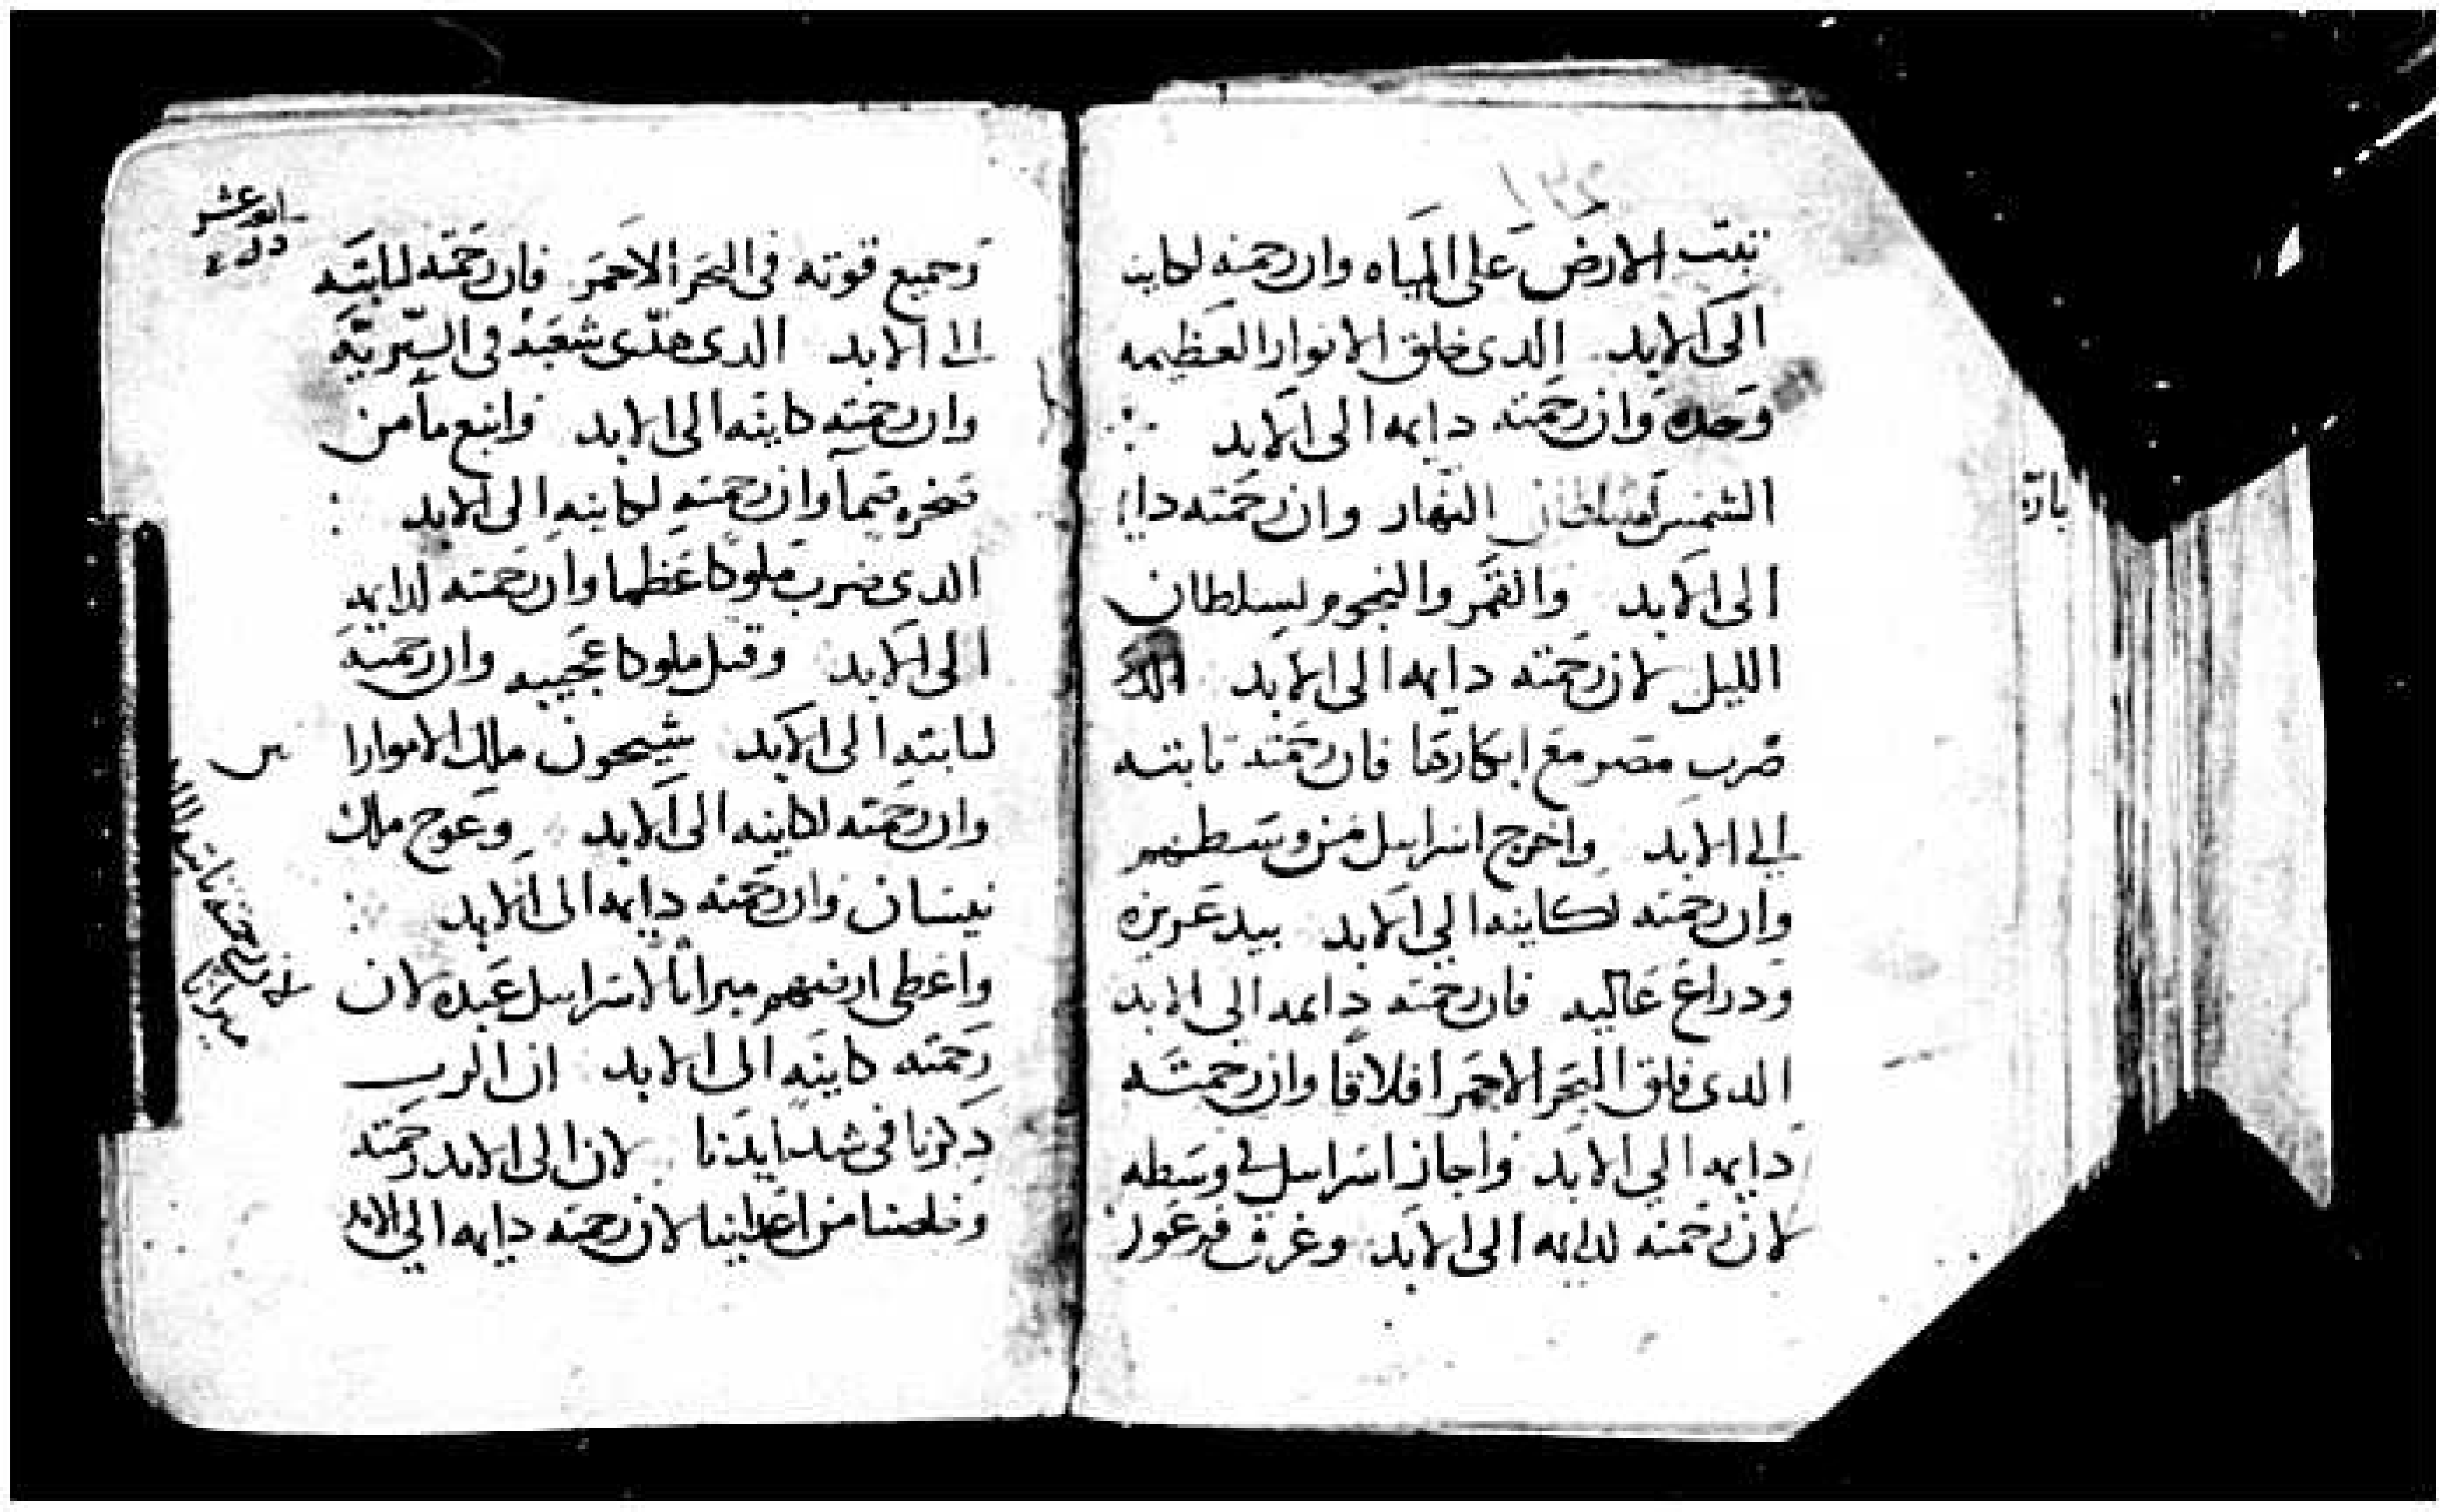 ثبت الارض على المياه وان رحمته لكاينه
الى الابد الدى خلق الانوار العظيمه
وحده وان رحمته دايمه الى الابد
الشمس لسلطان النهار وان رحمته دا
الى الابد والقمر والنجوم لسلطان
الليل لان رحمته دايمه الى الابد الدى
ضرب مصر مع ابكارها فان رحمته تابته
الي الابد واخرج اسراييل من وسطهم
وان رحمته لكاينه الي الابد بيد عزيزه
ودراع عاليه فان رحمته دايمه الي الابد
الدى فلق البحر الاحمر افلاقا وان رحمته
دايمه الي الابد واجاز اسراييل في وسطه
لان رحمته لدايمه الى الابد وغرق فرعون
وجميع قوته فى البحر الاحمر فان رحمته لتابته
الي الابد الدى هدى شعبه في البريه
وان رحمته كاينه الى الابد وانبع ما من
صخره صما وان رحمته لكاينه الى الابد
الدى ضرب ملوكا عظما وان رحمته لدايمه
الى الابد وقتل ملوكا عجيبه وان رحمته
لتابته الى الابد شيحون ملك الاموارا
وان رحمته لكاينه الى الابد وعوج ملك
نيسان وان رحمته دايمه الى الابد
واعطى ارضهم ميراثا لاسراييل عبده لان
رحمته كاينه الى الابد ان الرب
دكرنا فى شدايدنا لان الى الابد رحمته
وخلصنا من اعداينا لان رحمته دايمه الي الابد